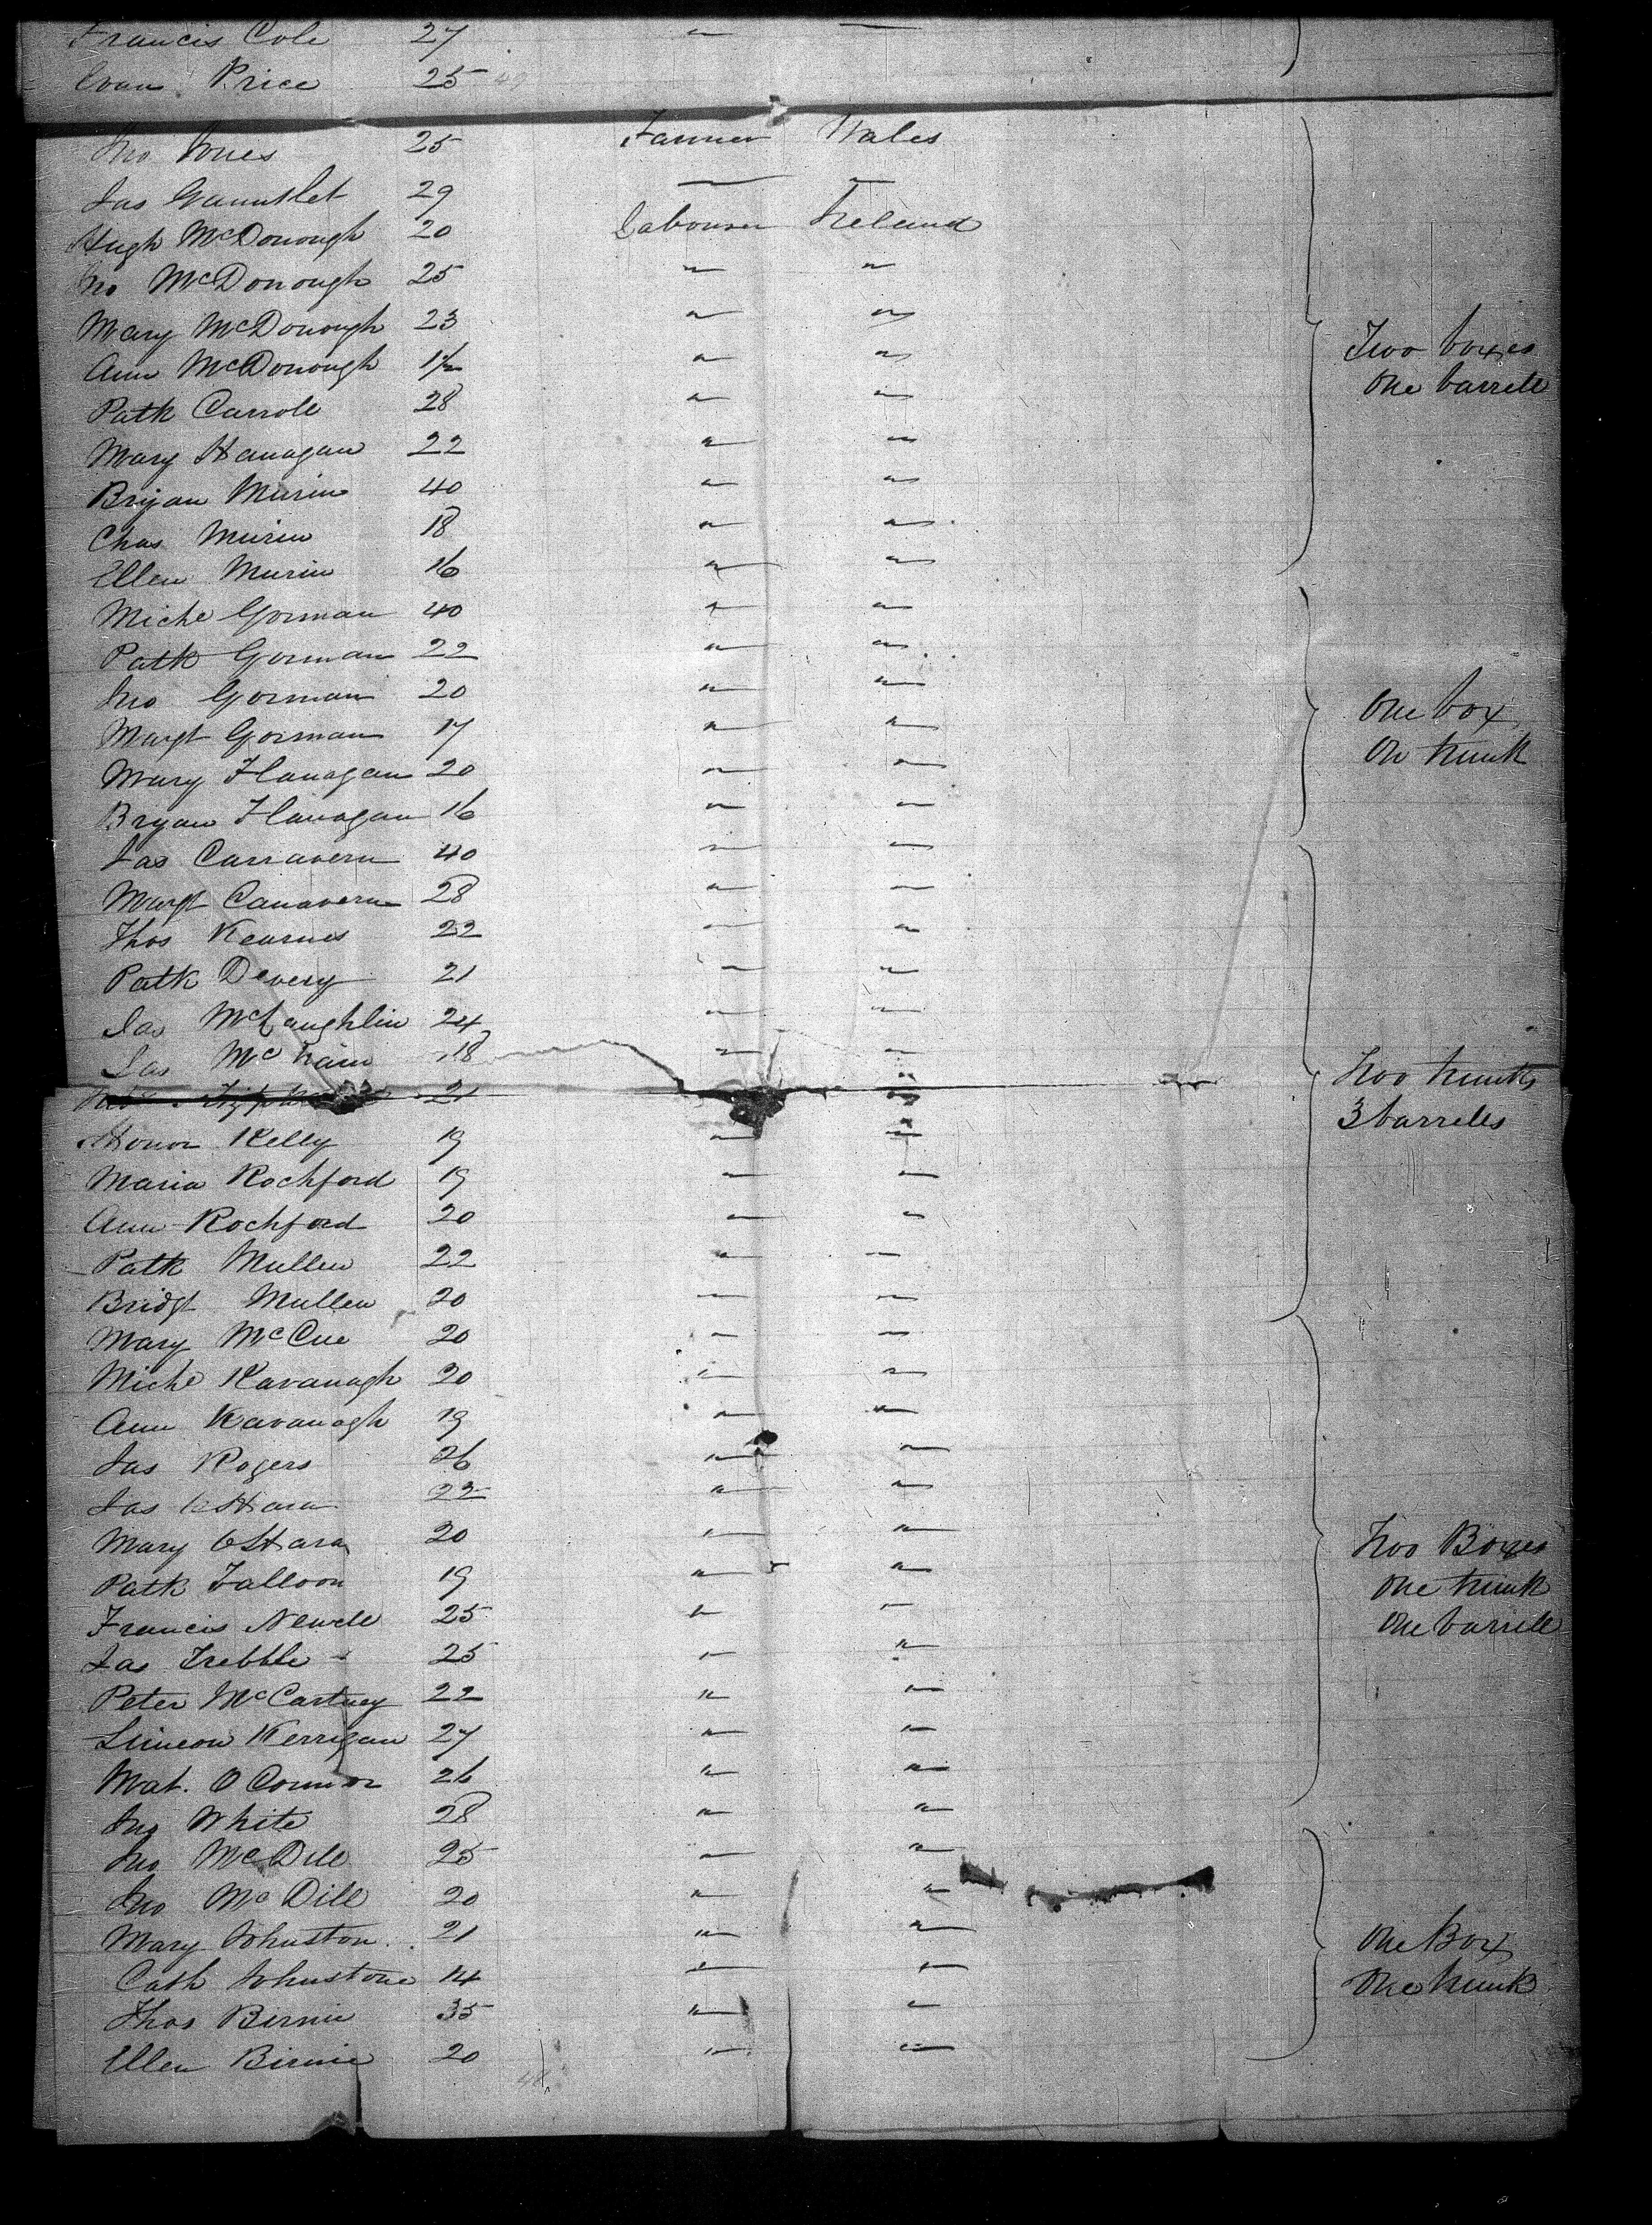 Francis Cole 27 " "
Evan Price 25 49
Jno Jones 25 Farmer Wales
Jas Gauntlet 29 " "
Hugh McDonough 20 Labourer Ireland
Jno McDonough 25 " "
Mary McDonough 23 " "
Ann McDonough 1½ " " Two boxes
Patk Carroll 28 " " One barrell
Mary Hanagan 22 " "
Bryan Murin 40 " "
Chas Murin 18 " "
Ellen Murin 16 " "
Michl Gorman 40 " "
Patk Gorman 22 " "
Jno Gorman 20 " "
Margt Gorman 17 " " One box
Mary Flanagan 20 " " On trunk
Bryan Flanagan 16 " "
Jas Carravern 40 " "
Margt Canavern 28 " "
Thos Kearnes 22 " "
Patk Devery 21 " "
Jas McLaughlin 24 " "
Jas Mc 18 " "
21 " " Two trunks
Honor Kelly 19 " " 3 barrells
Maria Rochford 19 " "
Ann Rochford 20 " "
Patk Mullen 22 " "
Bridgt Mullen 20 " "
Mary McCue 20 " "
Michl Kavanagh 20 " "
Ann Kavanagh 19 " "
Jas Rogers 26 " "
Jas OHara 22 " "
Mary OHara 20 " " Two Boxes
Patk Falloon 19 " " One trunk
Francis Newell 25 " " One barrell
Jas Trebble 25 " "
Peter McCartney 22 " "
Simeon Kerrigan 27 " "
Mat. O Connor 26 " "
Jno White 28 " "
Jno McDill 25 " "
Jno McDill 20 " "
Mary Johnston 21 " " One Box
Cath Johnstone 14 " " One trunk
Thos Birnie 35 " "
Ellen Birnie 20 " "